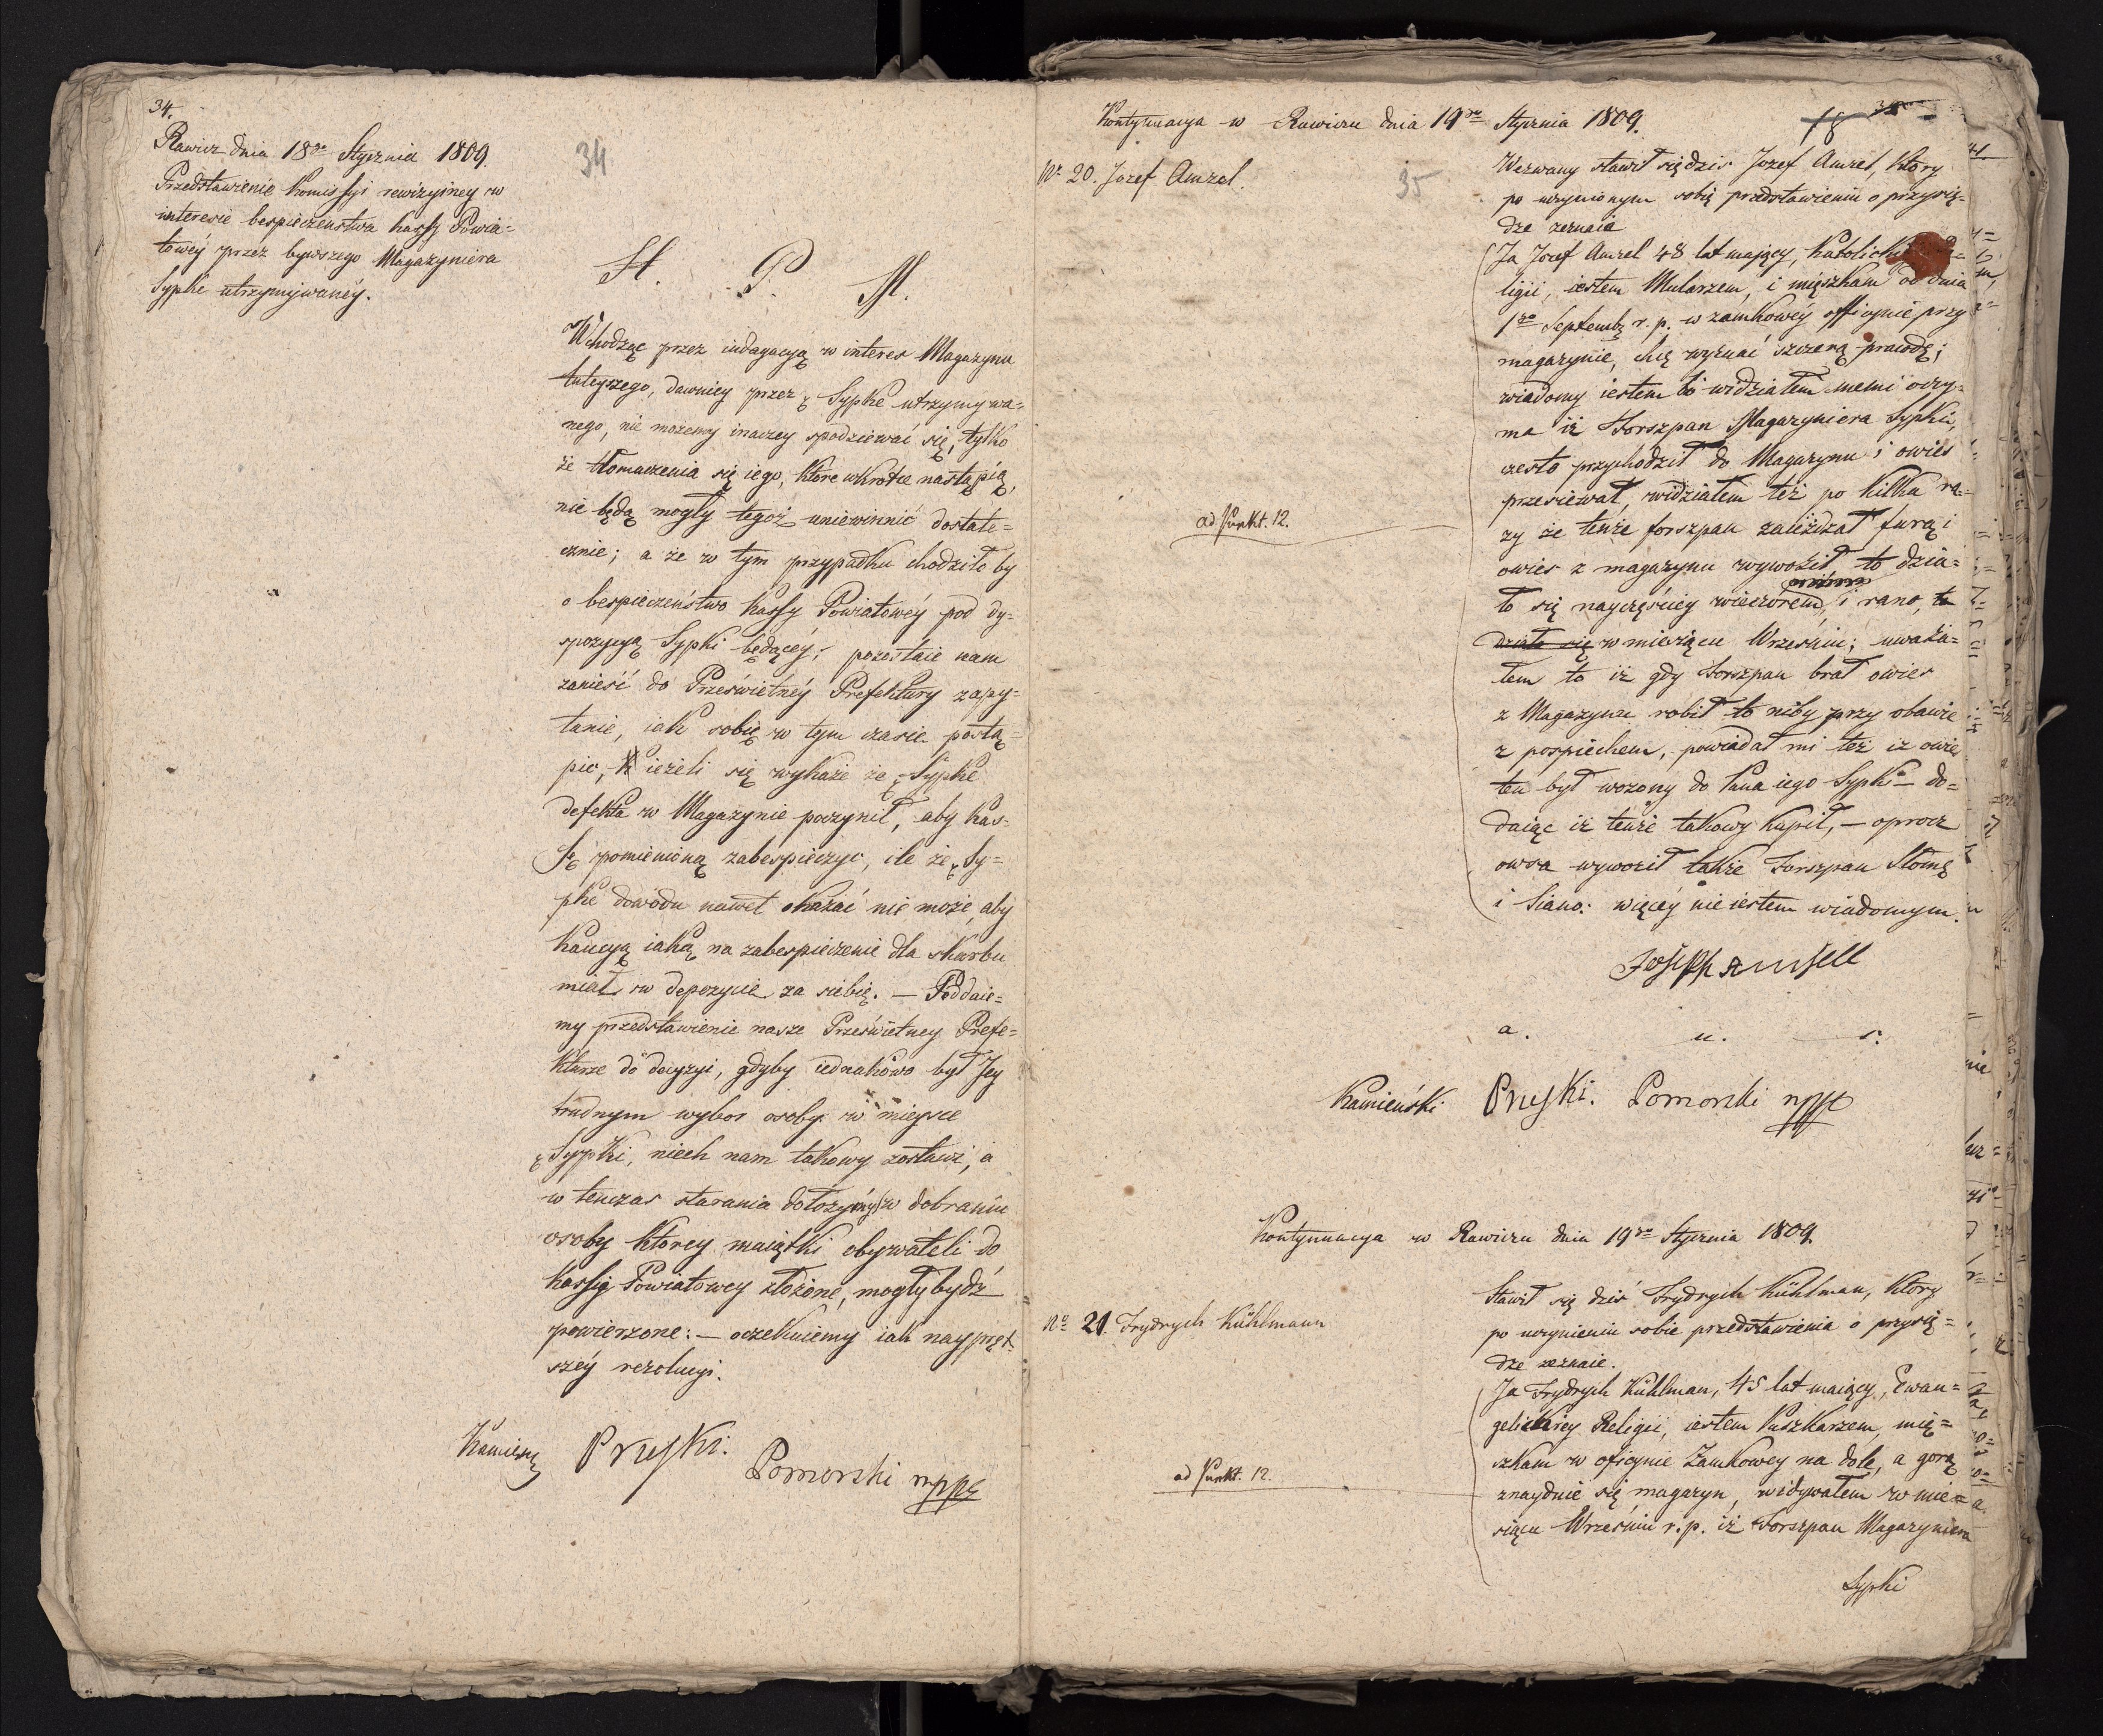 34.
Rawicz dnia 18go Stycznia 1809.
Przedstawienie Kommissyi rewizyiney w
interesie bespieczenstwa kassy Powia=
towéy przez bywszego Magazyniera
Sypke utrzymywanéy.
34
H. P. M.
Wchodząc przez indagacyą w interes Magazynu
tuteyszego, dawniey przez Sypke utrzymywa=
nego, nie możemy inaczey spodziewać się, tylko
że tłomaczenia się iego, które wkrotce nastąpią,
nie będą mogły tegoż uniewinnić dostate=
cznie; a że w tym przypadku chodziło by
o bespieczeństwo kassy Powiatowéy pod dy=
spozycyą Sypki będącéy; pozostaie nam
zanieść do Prześwietnéy Prefektury zapy=
tanie, iak sobie w tym czasie postą=
pic, ieżeli się wykaże że Sypke
defekta w Magazynie poczynił, aby kas=
sę pomienioną zabespieczyc, ile że Sy=
pke dowodu nawet okazać nie może, aby
kaucyą iaką na zabespieczenie dla skarbu
miał w depozycie za siebie. — Poddaie=
my przedstawienie nasze Prześwietney Prefe=
kturze do decyzyi, gdyby iednakowo był Jey
trudnym wybor osoby w mieysce
Sypki, niech nam takowy zostawi, a
w tenczas starania dołożymy w dobraniu
osoby ktorey maiątki obywateli do
kassy Powiatowey złożone, mogły bydź
powierzone: — oczekuiemy iak naypręt=
széy rezolucyi.
Kamieński Pruski. Pomorski mpp
Kontynuacya w Rawiczu dnia 19go Stycznia 1809.
18
No 20. Jozef Amzel.
35
Wezwany stawił się dzis Jozef Amzel, ktory
po uczynionym sobie przedstawieniu o przysię=
dze zeznaie
Ja Jozef Amzel 48 lat maiący, Katolickiey Re=
ligii, iestem Mularzem, i mięszkam od dnia
1go Septembr. r. p. w zamkowéy officynie przy
magazynie, chcę wyznać szczerą prawdę;
wiadomy iestem bo widziałem memi oczy=
ma iż Forszpan Magazyniera Sypki,
często przychodził do Magazynu i owies
przesiewał, widziałem też po kilka ra=
zy że tenże forszpan zaieżdzał furą i
ad Punkt. 12.
owies z magazynu wywoził to dzia=
ło się nayczęściey wieczorem, i rano, to
działo się w miesiącu Wrześniu; uważa=
łem to iż gdy Forszpan brał owies
z Magazynu robił to niby przy obawie
z pospiechem, powiadał mi też iz owies
ten był wożony do Pana iego Sypki — do=
daiąc iż tenże takowy kupił, — oprocz
owsa wywoził także Forszpan Słomę
i Siano: więcéy nie iestem wiadomym.
Joseph Amsell
a. u. s.
Kamieński Pruski. Pomorski mpp
Kontynuacya w Rawiczu dnia 19go Stycznia 1809.
No 21. Frydrych Kühlmann
Stawił się dzis Frydrych Kühlman, ktory
po uczynieniu sobie przedstawienia o przysię=
dze zeznaie.
Ja Frydrych Kühlman, 45 lat maiący, Ewan=
gelickiey Religii, iestem Puszkarzem, mię=
szkam w oficynie Zamkowey na dole, a gorą
ad Punkt. 12.
znayduie się magazyn, widywałem w mie=
siącu Wrześniu r. p. iż Forszpan Magazyniera
Sypki